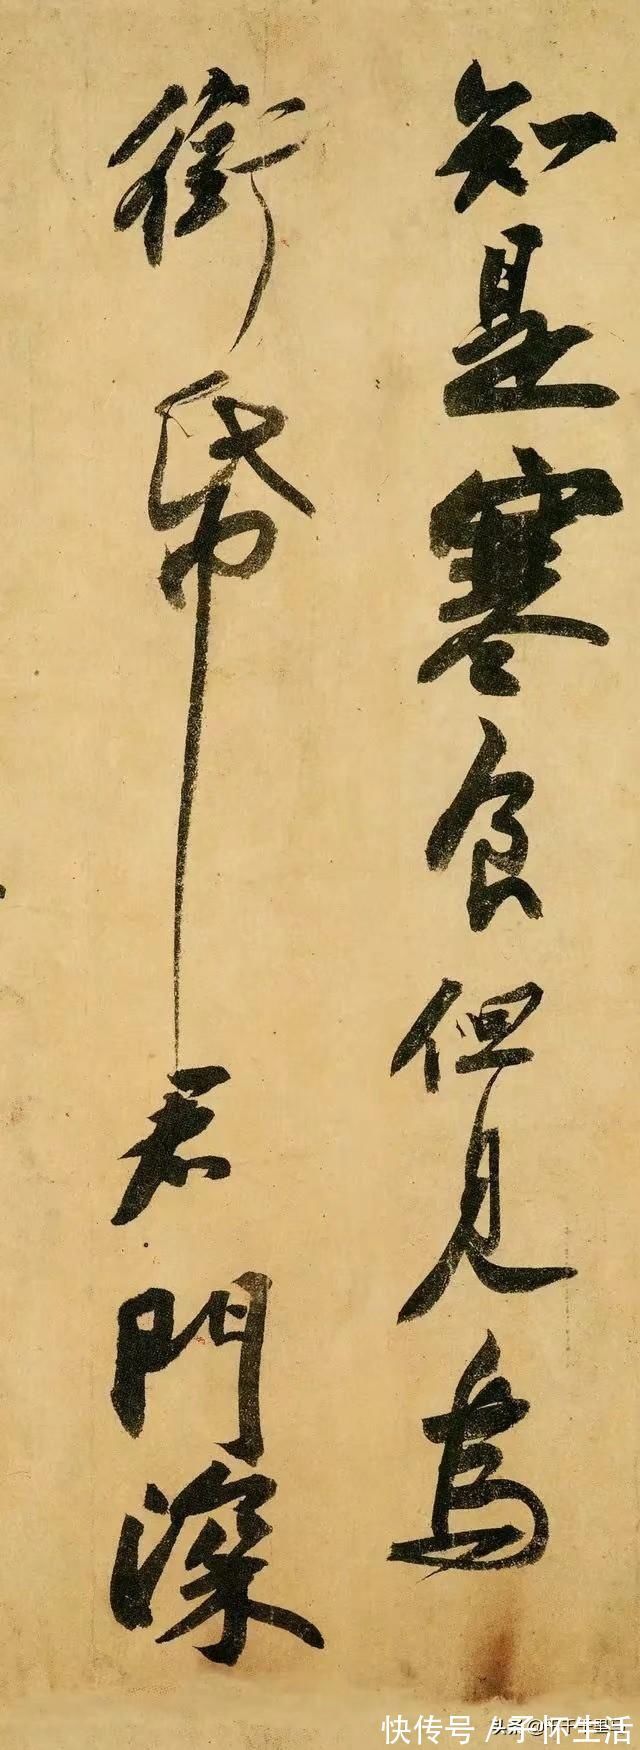 知是寒食但見烏
銜帋君門深
快传号/予怀生活
头条@